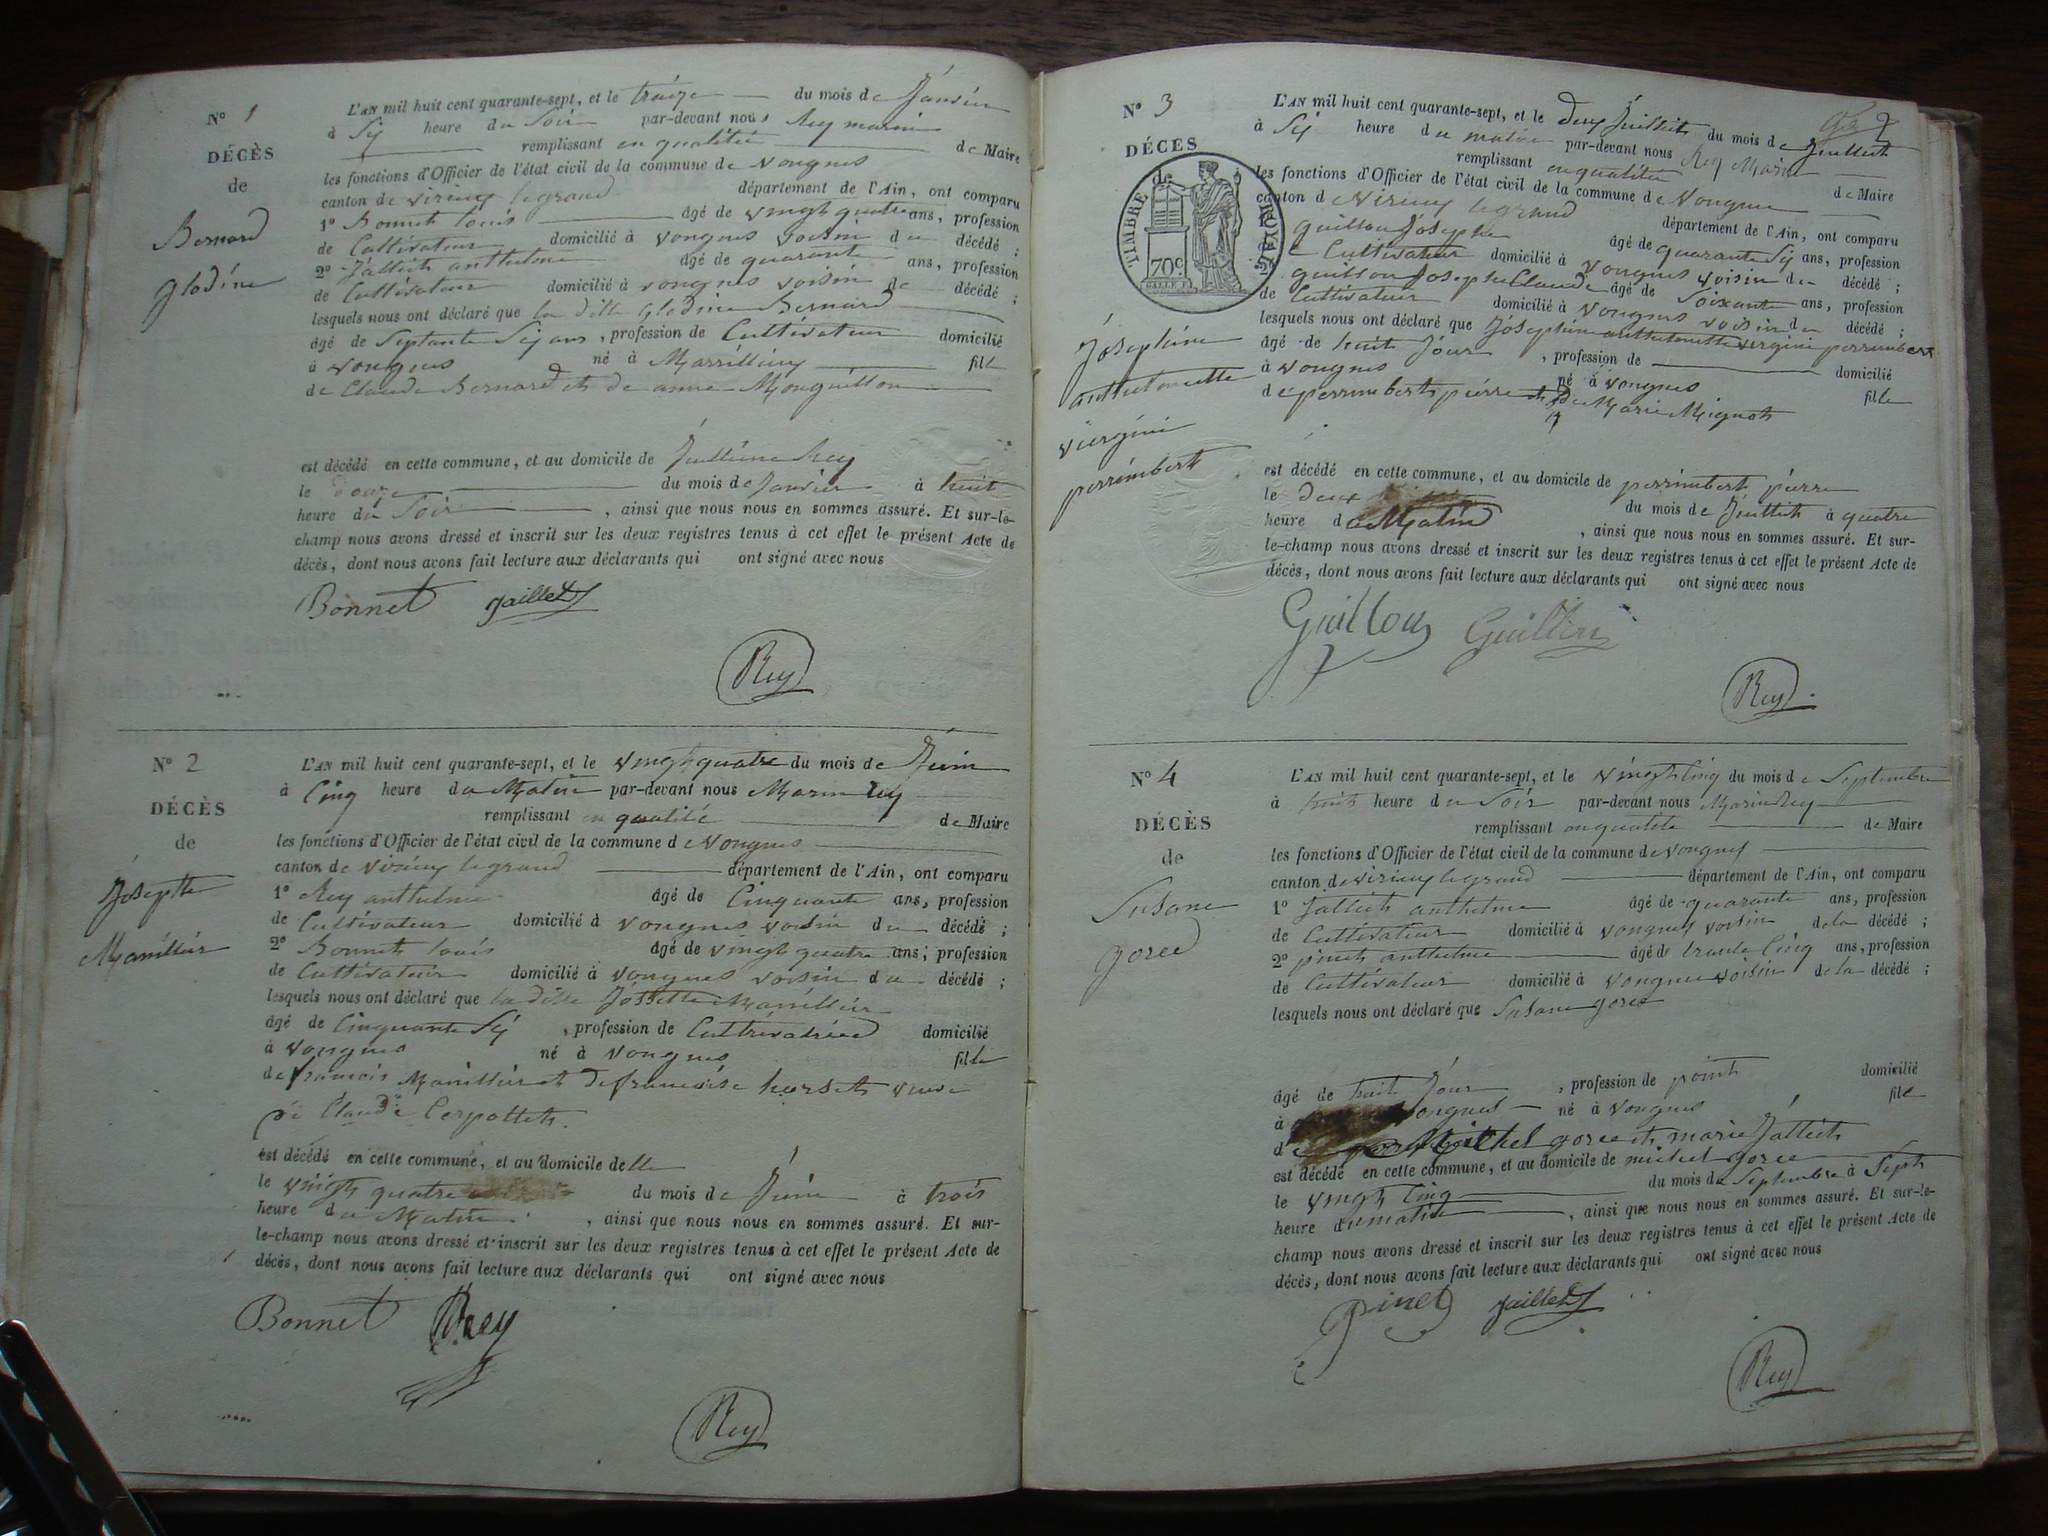 N° 1
DÉCÈS
de
Bernard
glodine
L'AN mil huit cent quarante-sept, et le traize du mois de Janvier
à Sij heure du Soir par-devant nous Rey marin
remplissant en qualitée de Maire
les fonctions d'Officier de l'état civil de la commune de vongnes
canton de virieu legrand département de l'Ain, ont comparu
1° Bonnet louis âgé de vingt quatre ans, profession
de Cultivateur domicilié à vongnes voisin du décédé ;
2° Jallieth anthelme âgé de quarante ans, profession
de Cultivateur domicilié à vongnes voisin de décédé ;
lesquels nous ont déclaré que la ditte glodine Bernard
âgé de Septante Sij ans, profession de Cultivateur domicilié
à vongnes né à fille
de Claude Bernard et de anne Monguillon
est décédé en cette commune, et au domicile de Rey
le douze du mois de Janvier à huit
heure du Soir, ainsi que nous nous en sommes assuré. Et sur-le-
champ nous avons dressé et inscrit sur les deux registres tenus à cet effet le présent Acte de
décès, dont nous avons fait lecture aux déclarants qui ont signé avec nous
Bonnet Jaillet
Rey
N° 2
DÉCÈS
de
Josepte
Manillier
L'AN mil huit cent quarante-sept, et le vingt quatre du mois de Juin
à Cinq heure du Matin par-devant nous Marin Rey
remplissant en qualité de Maire
les fonctions d'Officier de l'état civil de la commune de vongnes
canton de virieu legrand département de l'Ain, ont comparu
1° Rey anthelme âgé de Cinquante ans, profession
de Cultivateur domicilié à vongnes voisin du décédé ;
2° Bonnet louis âgé de vingt quatre ans ; profession
de Cultivateur domicilié à vongnes voisin du décédé ;
lesquels nous ont déclaré que la ditte Josette Manillier
âgé de Cinquante Sij, profession de domicilié
à vongnes né à vongnes fille
de francois Manillier et de francoise veuve
de Claude
est décédé en cette commune, et au domicile delle
le vingt quatre du mois de Juin à trois
heure du Matin, ainsi que nous nous en sommes assuré. Et sur-
le-champ nous avons dressé et inscrit sur les deux registres tenus à cet effet le présent Acte de
décès, dont nous avons fait lecture aux déclarants qui ont signé avec nous
Bonnet Rey
Rey
N° 3
DÉCÈS
de
TIMBRE ROYAL
70c
Joséphine
anthelmette
viergini
perrimbert
L'AN mil huit cent quarante-sept, et le deux Juillet du mois de Juillet
à Sij heure du matin par-devant nous Rey Marin
remplissant en qualitée de Maire
les fonctions d'Officier de l'état civil de la commune de Vongnes
canton de virieu legrand département de l'Ain, ont comparu
guillon Joseph âgé de quarante Sij ans, profession
de Cultivateur domicilié à vongnes voisin du décédé ;
2° guillon Joseph Claude âgé de Soixante ans, profession
de Cultivateur domicilié à vongnes voisin du décédé ;
lesquels nous ont déclaré que Joséphine anthelmette viergini perrimbert
âgé de huit Jour, profession de domicilié
à vongnes né à vongnes fille
de perrimbert pierre et de Marie Mignot
est décédé en cette commune, et au domicile de perrimbert pierre
le deux du mois de Juillet à quatre
heure du Matin, ainsi que nous nous en sommes assuré. Et sur-
le-champ nous avons dressé et inscrit sur les deux registres tenus à cet effet le présent Acte de
décès, dont nous avons fait lecture aux déclarants qui ont signé avec nous
Guillon Guillon
Rey
N° 4
DÉCÈS
de
Susane
goree
L'AN mil huit cent quarante-sept, et le vingt Cinq du mois de Septembre
à huit heure du Soir par-devant nous Marin Rey
remplissant en qualité de Maire
les fonctions d'Officier de l'état civil de la commune de vongnes
canton de virieu legrand département de l'Ain, ont comparu
1° Jallieth anthelme âgé de quarante ans, profession
de Cultivateur domicilié à vongnes voisin dela décédé ;
2° pinet anthelme âgé de trante Cinq ans, profession
de Cultivateur domicilié à vongnes voisin dela décédé ;
lesquels nous ont déclaré que Susane goree
âgé de huit Jour, profession de point domicilié
à vongnes né à vongnes fille
de Michel goree et marie Jallieth
est décédé en cette commune, et au domicile de michel goree
le vingt Cinq du mois de Septembre à Sept
heure du matin, ainsi que nous nous en sommes assuré. Et sur-le-
champ nous avons dressé et inscrit sur les deux registres tenus à cet effet le présent Acte de
décès, dont nous avons fait lecture aux déclarants qui ont signé avec nous
pinet Jaillet
Rey